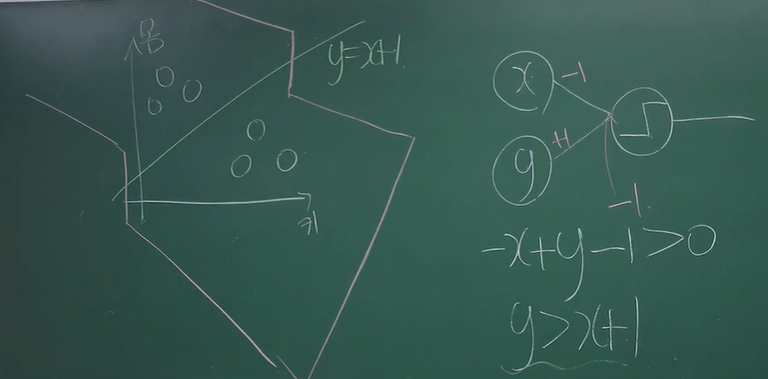 y=x+1
x
-1
y
+1
-1
-x+y-1>0
y>x+1